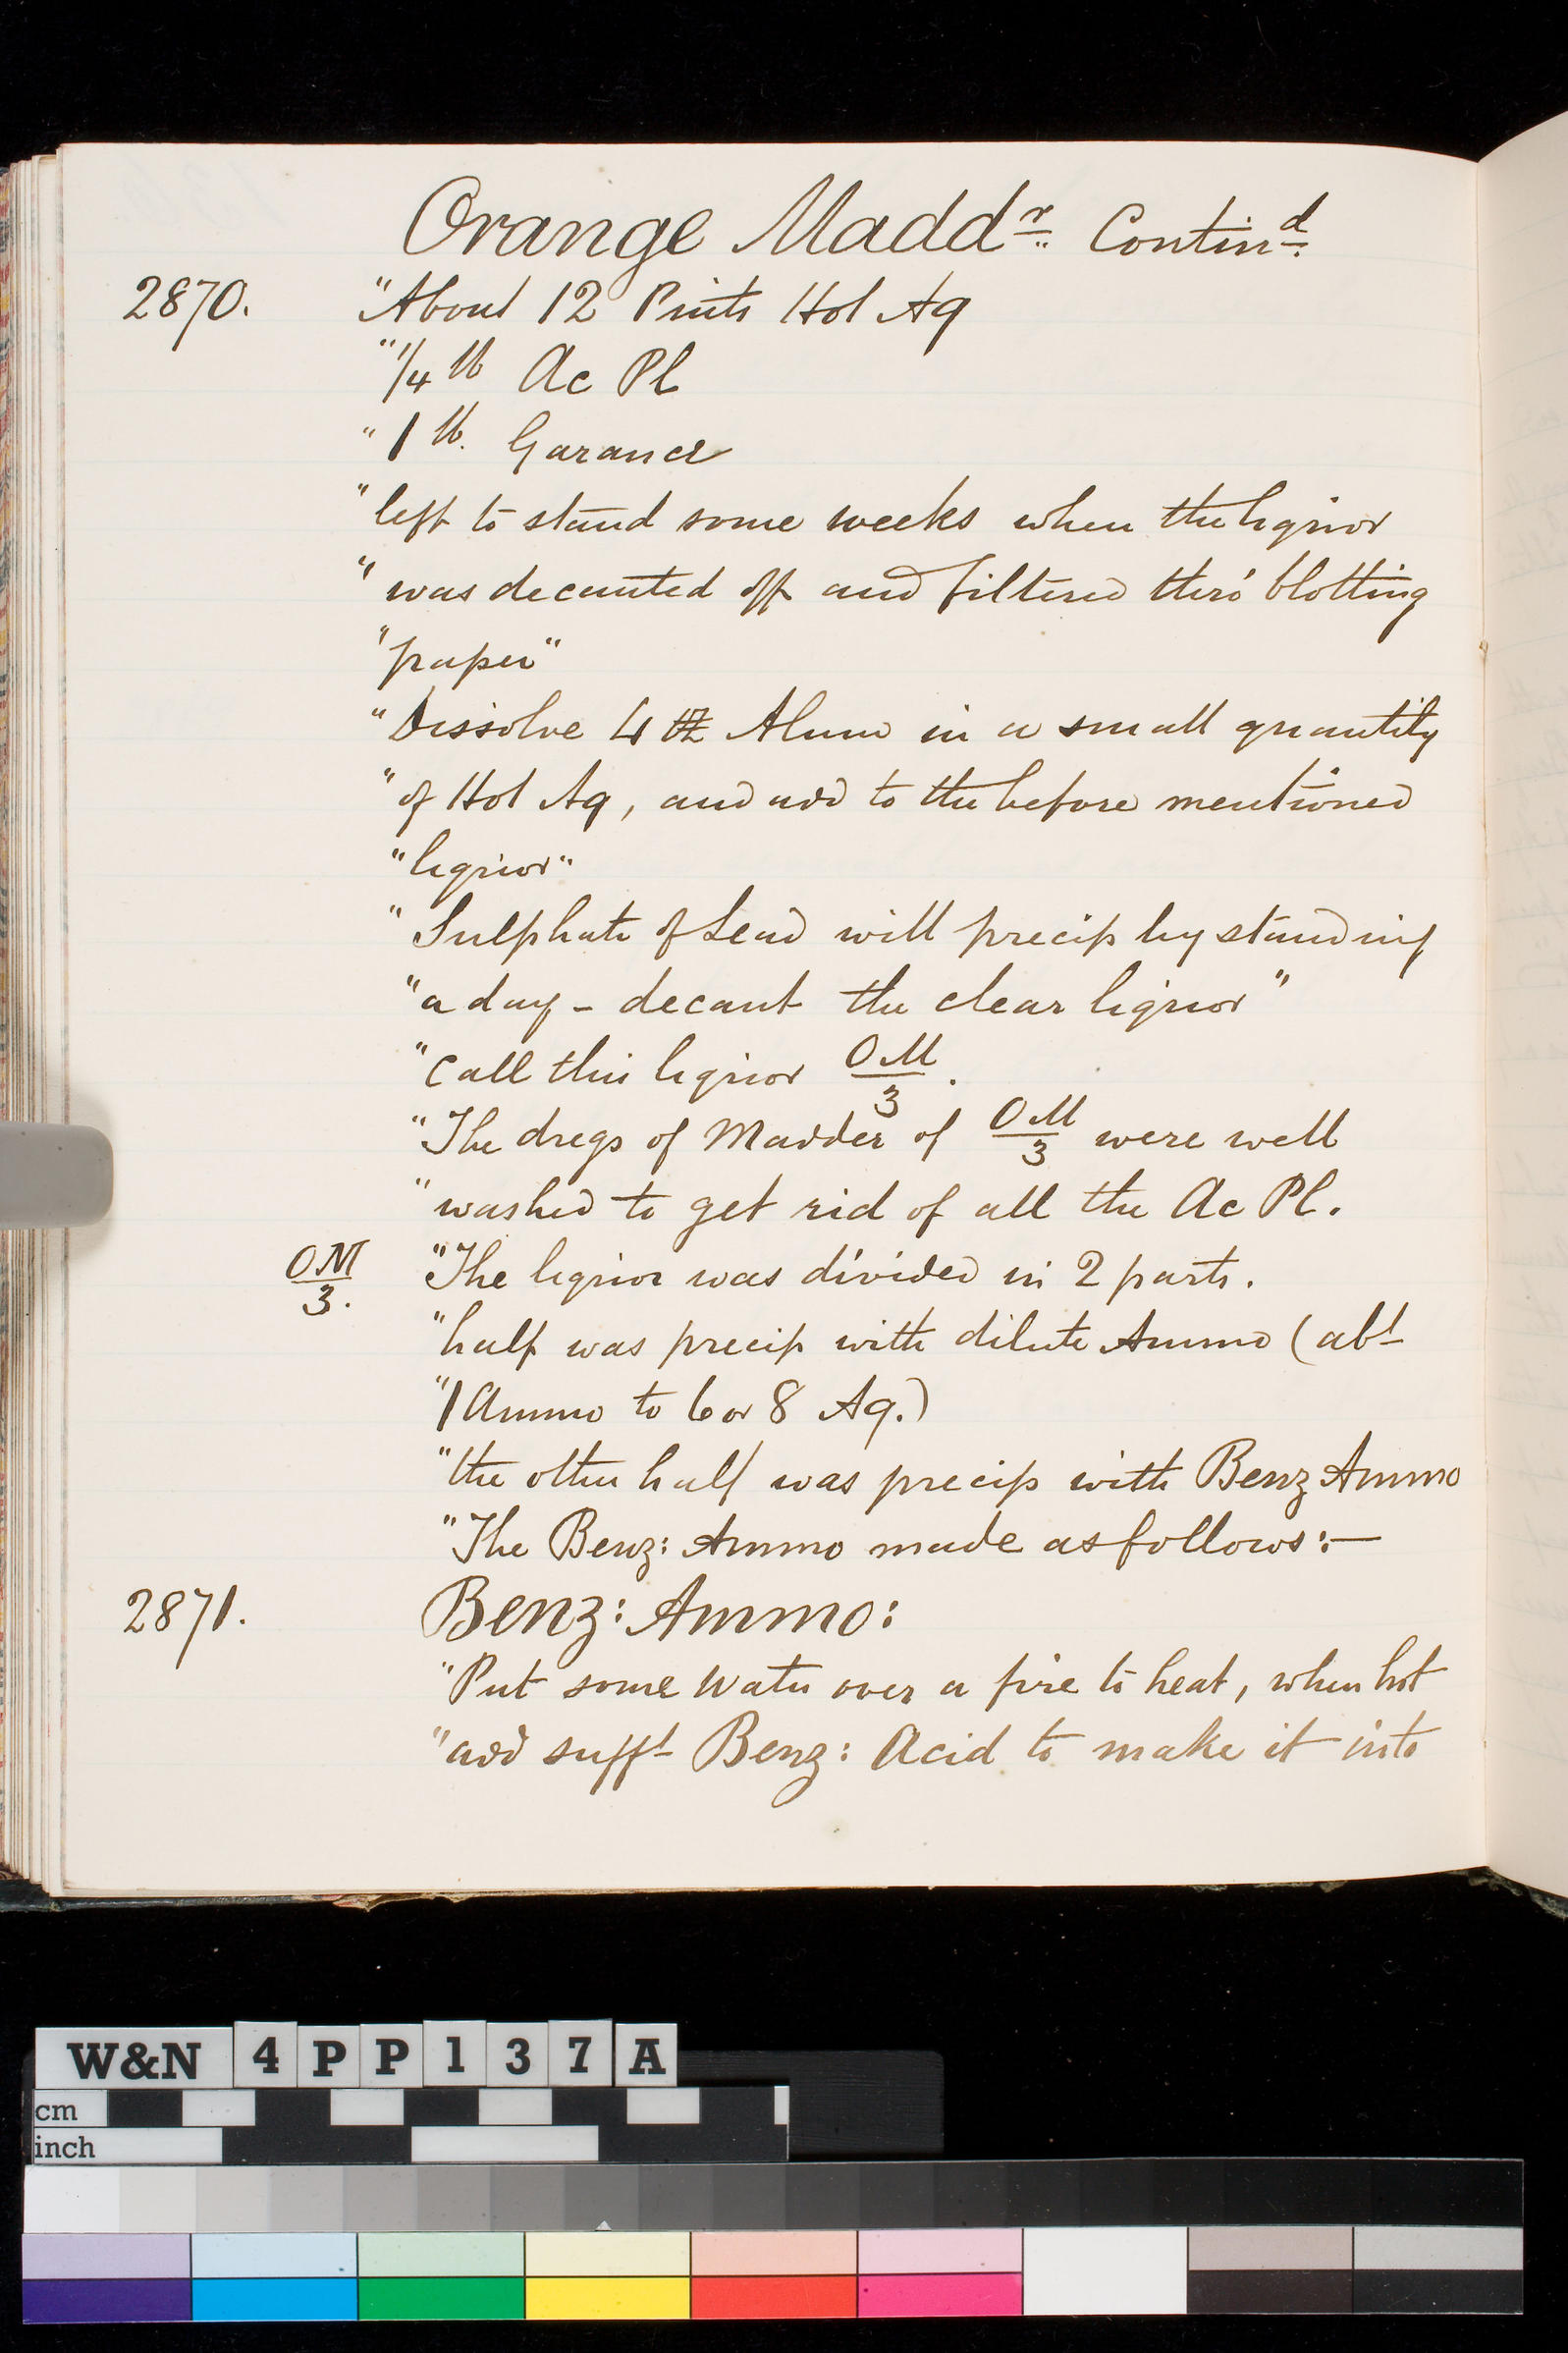 Orange Maddr Contind
2870. "About 12 Pints Hot Aq
"1/4 lb Ac Pl
"1 lb. Garance
"left to stand some weeks when the liquor
"was decanted off and filtered thro' blotting
"paper"
"Dissolve 4 oz Alum in a small quantity
"of Hot Aq, and add to the before mentioned
"liquor"
"Sulphate of Lead will precip by standing
"a day - decant the clear liquor"
"Call this liquor OM/3.
"The dregs of Madder of OM/3 were well
"washed to get rid of all the Ac Pl.
OM/3. "The liquor was divided in 2 parts.
"half was precip with dilute Ammo (abt
"1 Ammo to 6 or 8 Aq.)
"the other half was precip with Benz Ammo
"The Benz: Ammo made as follows:—
2871. Benz: Ammo:
"Put some Water over a fire to heat, when hot
"add sufft Benz: Acid to make it into
W&N 4PP137A
cm
inch